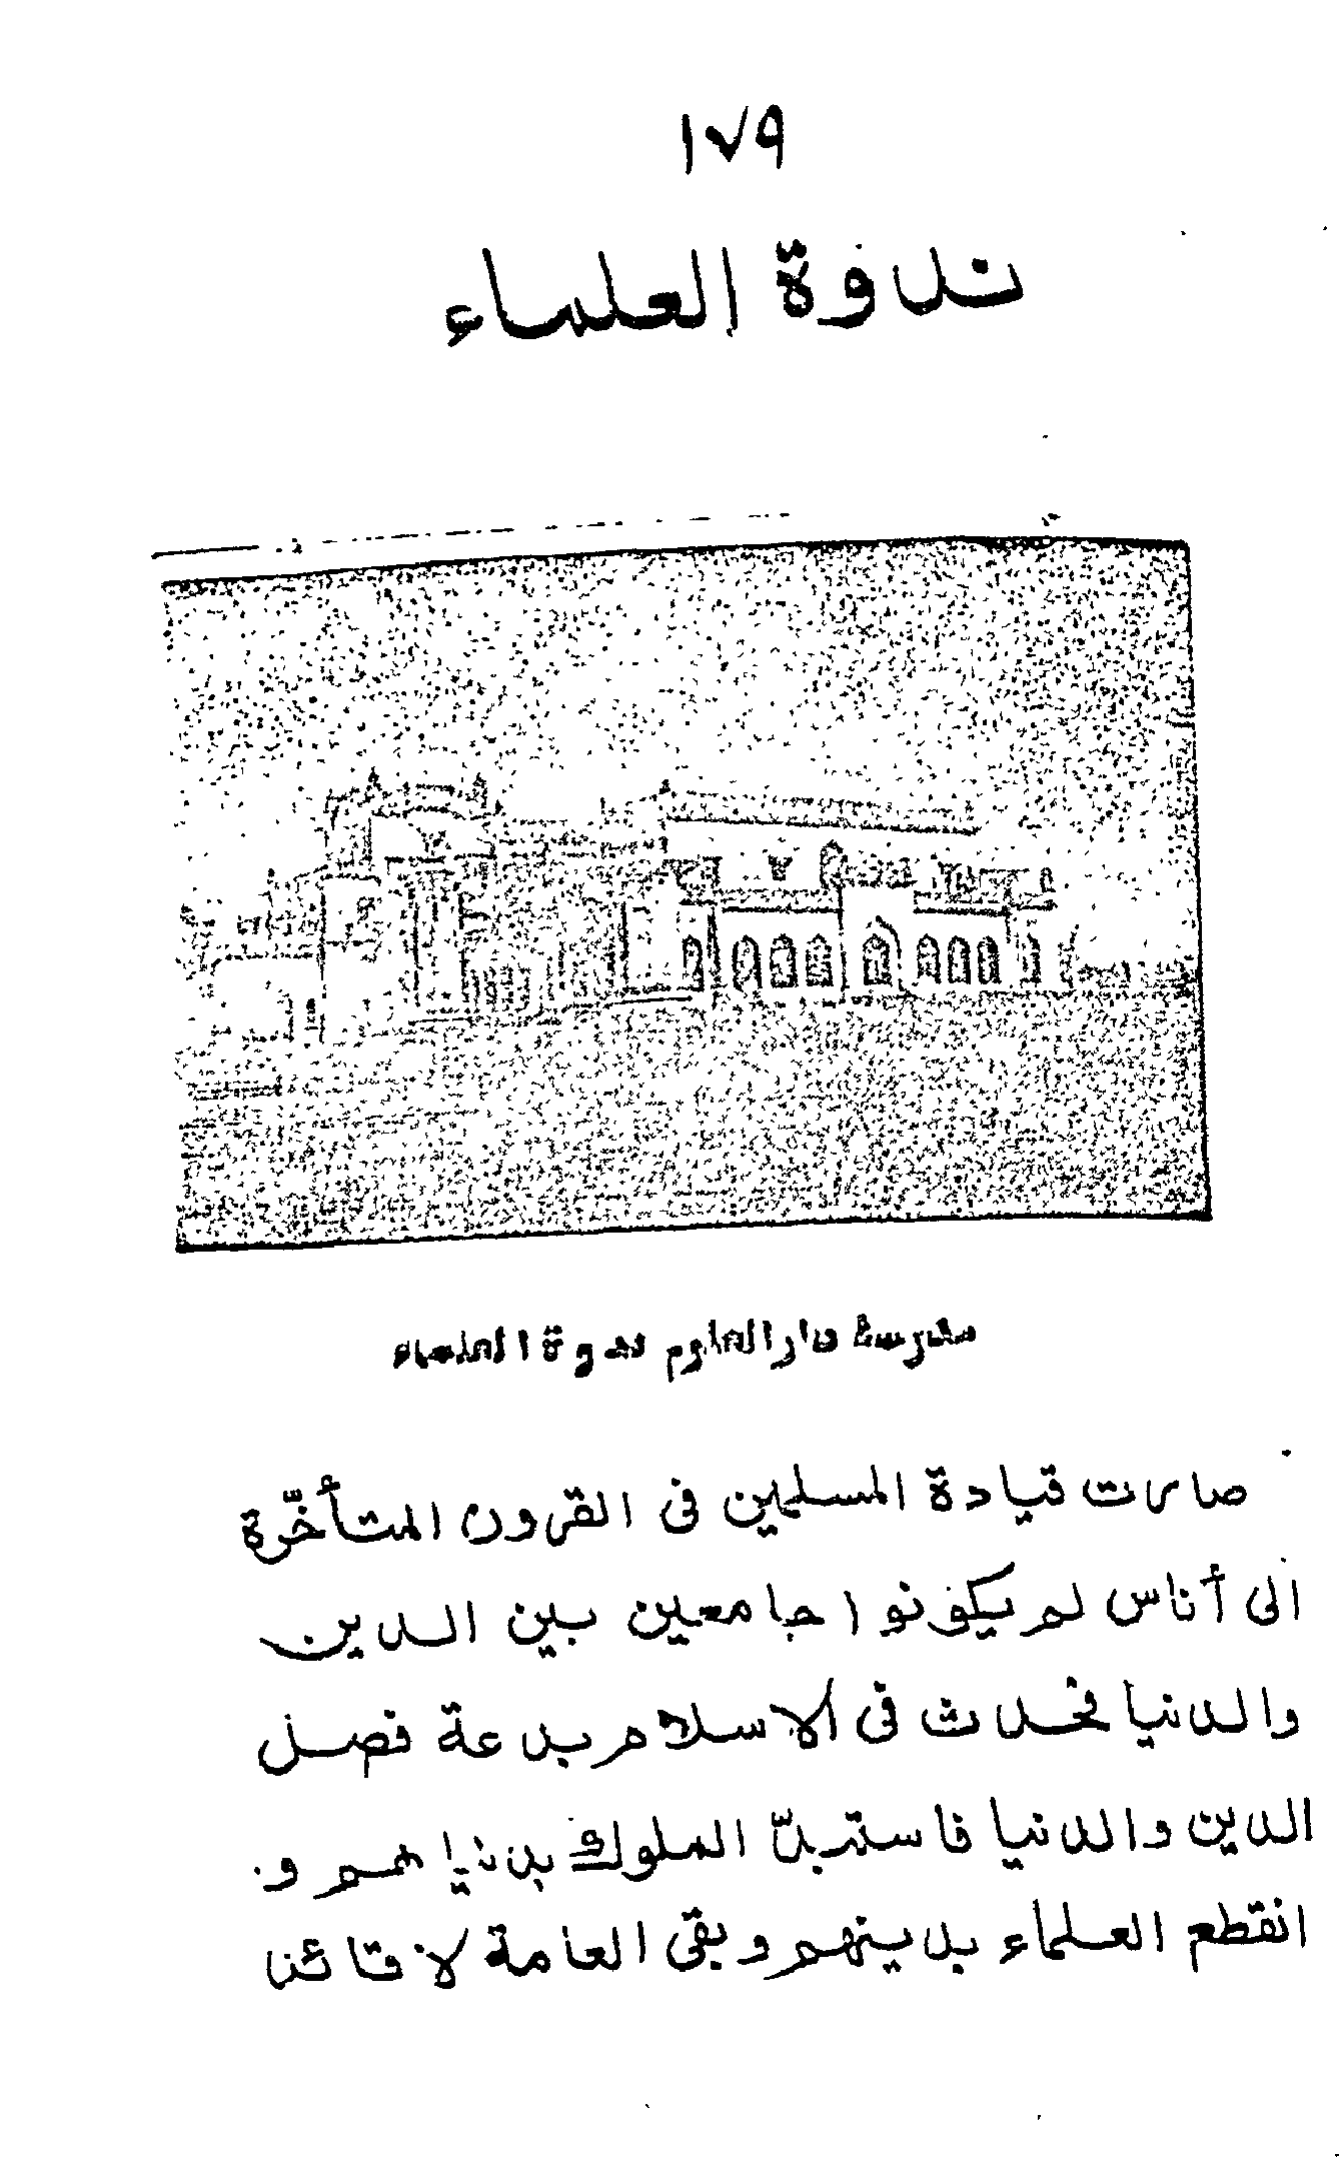 ١٧٩
ندوة العلماء
مدرسة دار العلوم ندوة العلماء
صارت قيادة المسلمين فى القرون المتأخّرة
الى أناس لم يكونوا جامعين بين الدين
والدنيا فحدث فى الاسلام بدعة فصل
الدين والدنيا فاستبدّ الملوك بدنياهم و
انقطع العلماء بدينهم وبقى العامة لا قائد